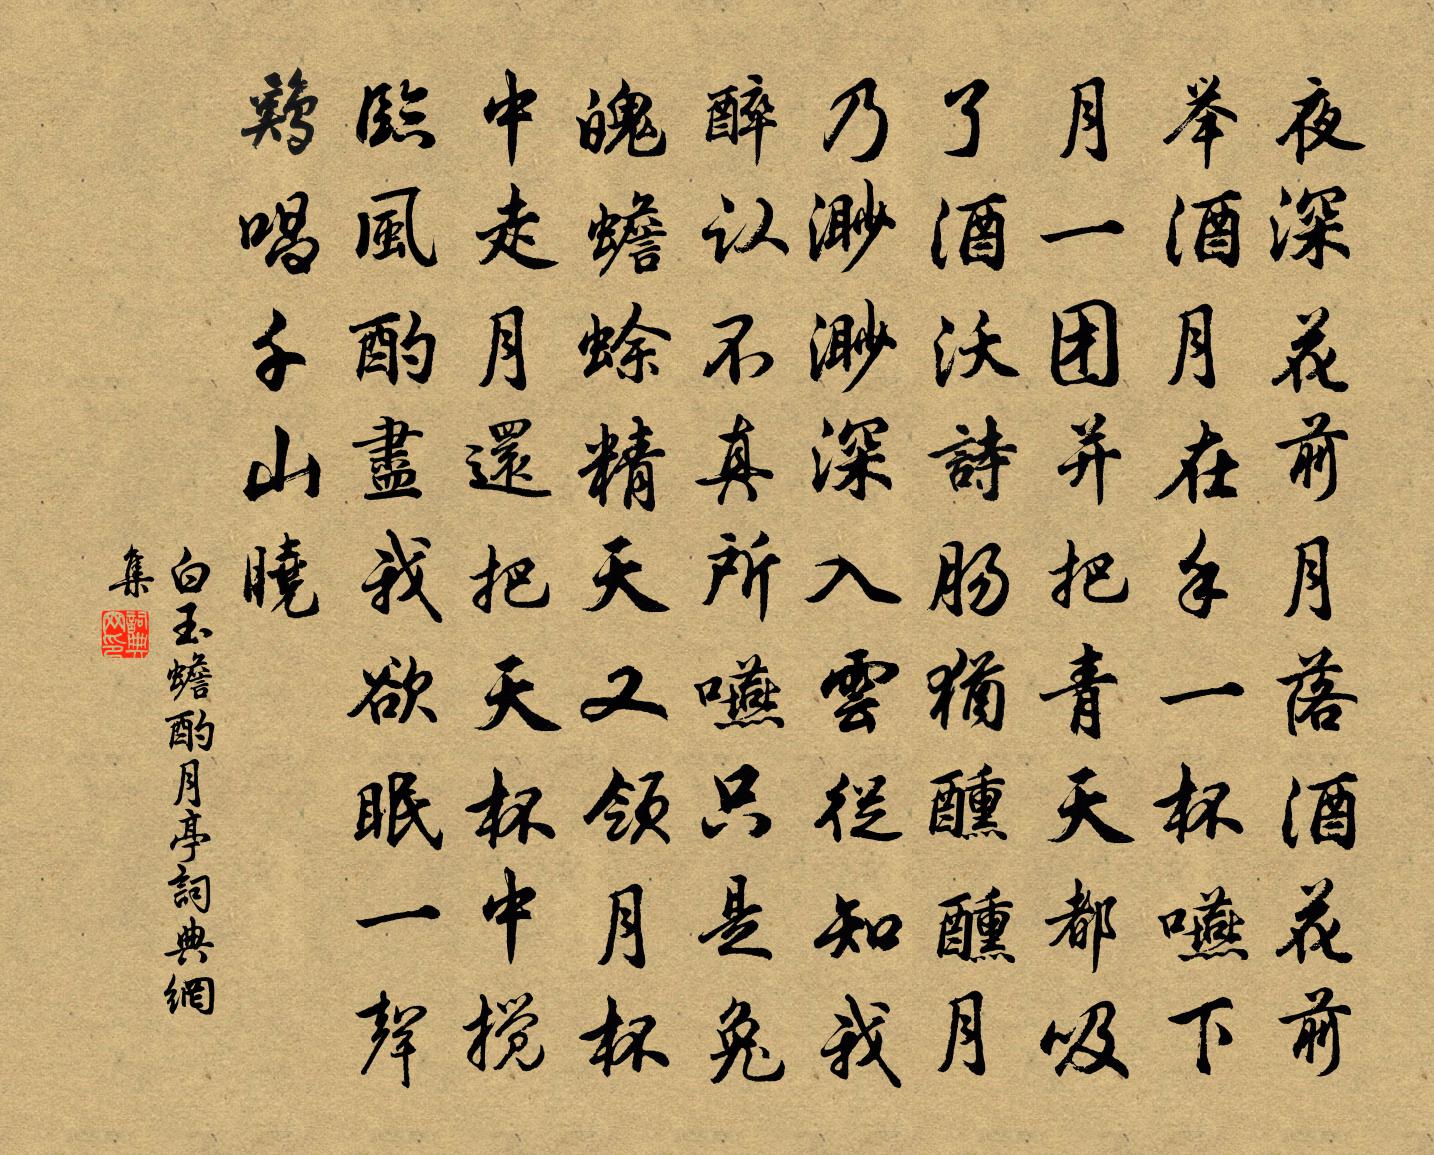 夜深花前月落酒花前
举酒月在手一杯嚥下
月一团并把青天都吸
了酒沃詩肠猶醺醺月
乃渺渺深入雲從知我
醉认不真所嚥只是兔
魄蟾蜍精天又领月杯
中走月還把天杯中搅
臨風酌盡我欲眠一聲
鷄唱千山曉
白玉蟾酌月亭詞典網
集
詞典网印